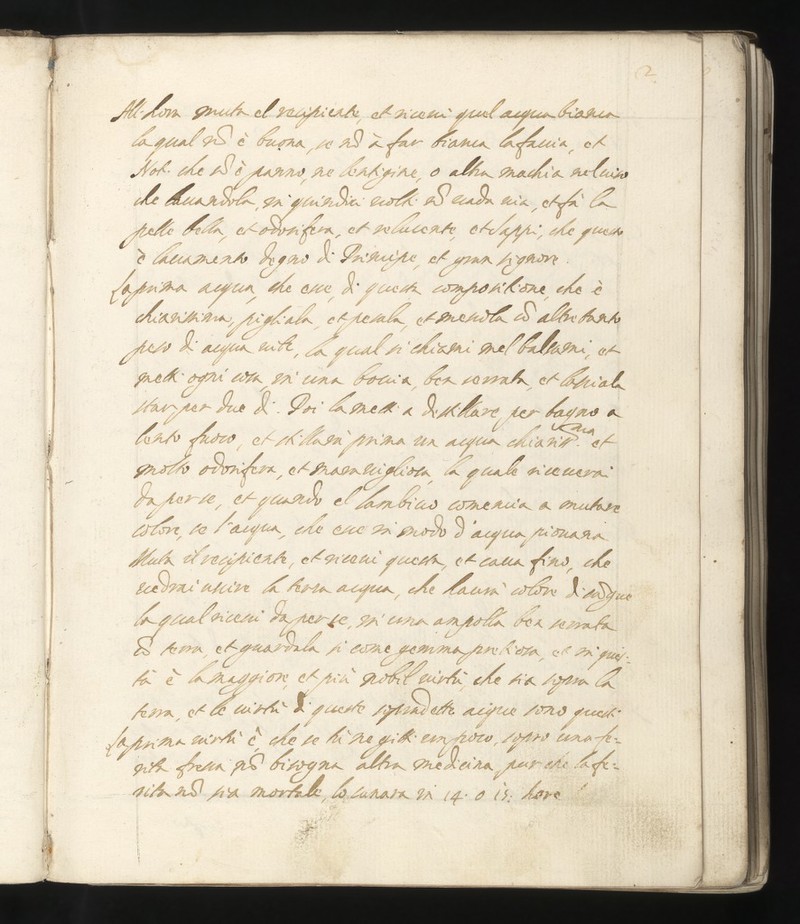 2
All hora muta el recipiente, et ricevi quel acqua bianca
la qual nõ è buona, se nõ à far bianca la facia, et
Not. che nõ è panno, ne lentigine, o altra machia nel viso
che lavandola, in quindici volte nõ vada via, et fà la
pelle bella, et odorifera, et relucente, et sappi, che questo
è lavamento degno di Principe, et gran signore.
La prima acqua, che esce, di questa compositione, che è
chiarissima, pigliala, et pesala, et mescola cõ altretanto
peso di acqua vite, la qual si chiami mel balsami, et
metti ogni cosa, in una bocia, ben serrata, et lasciala
star per due dì. Poi la metti a distillare per bagno a
lento fuoco, et stillarà prima un acqua chiariss.ma et
molto odorifera, et maravigliosa, la quale riceverai
da per se, et quando el lambico comencia a mutare
colore, se l'acqua, che esce in modo d'acqua
Muta il recipiente, et ricevi questa, et cava fino, che
vedrai uscire la terza acqua, che haurà colore di sãgue
la qual ricevi da per se, in una ampolla ben serrata
cõ terra, et guardala si come gemma pretiosa, et in ques-
ta è la maggiore, et più nobil virtù, che sia sopra la
terra, et le virtù di queste sopradette acque sono queste
La prima virtù è, che se tu ne gitti un poco, sopro una fe=
rita fresca nõ bisogna altra medicina, pur che la fe=
rita nõ sia mortale, lo sanara in 14. o 15. hore